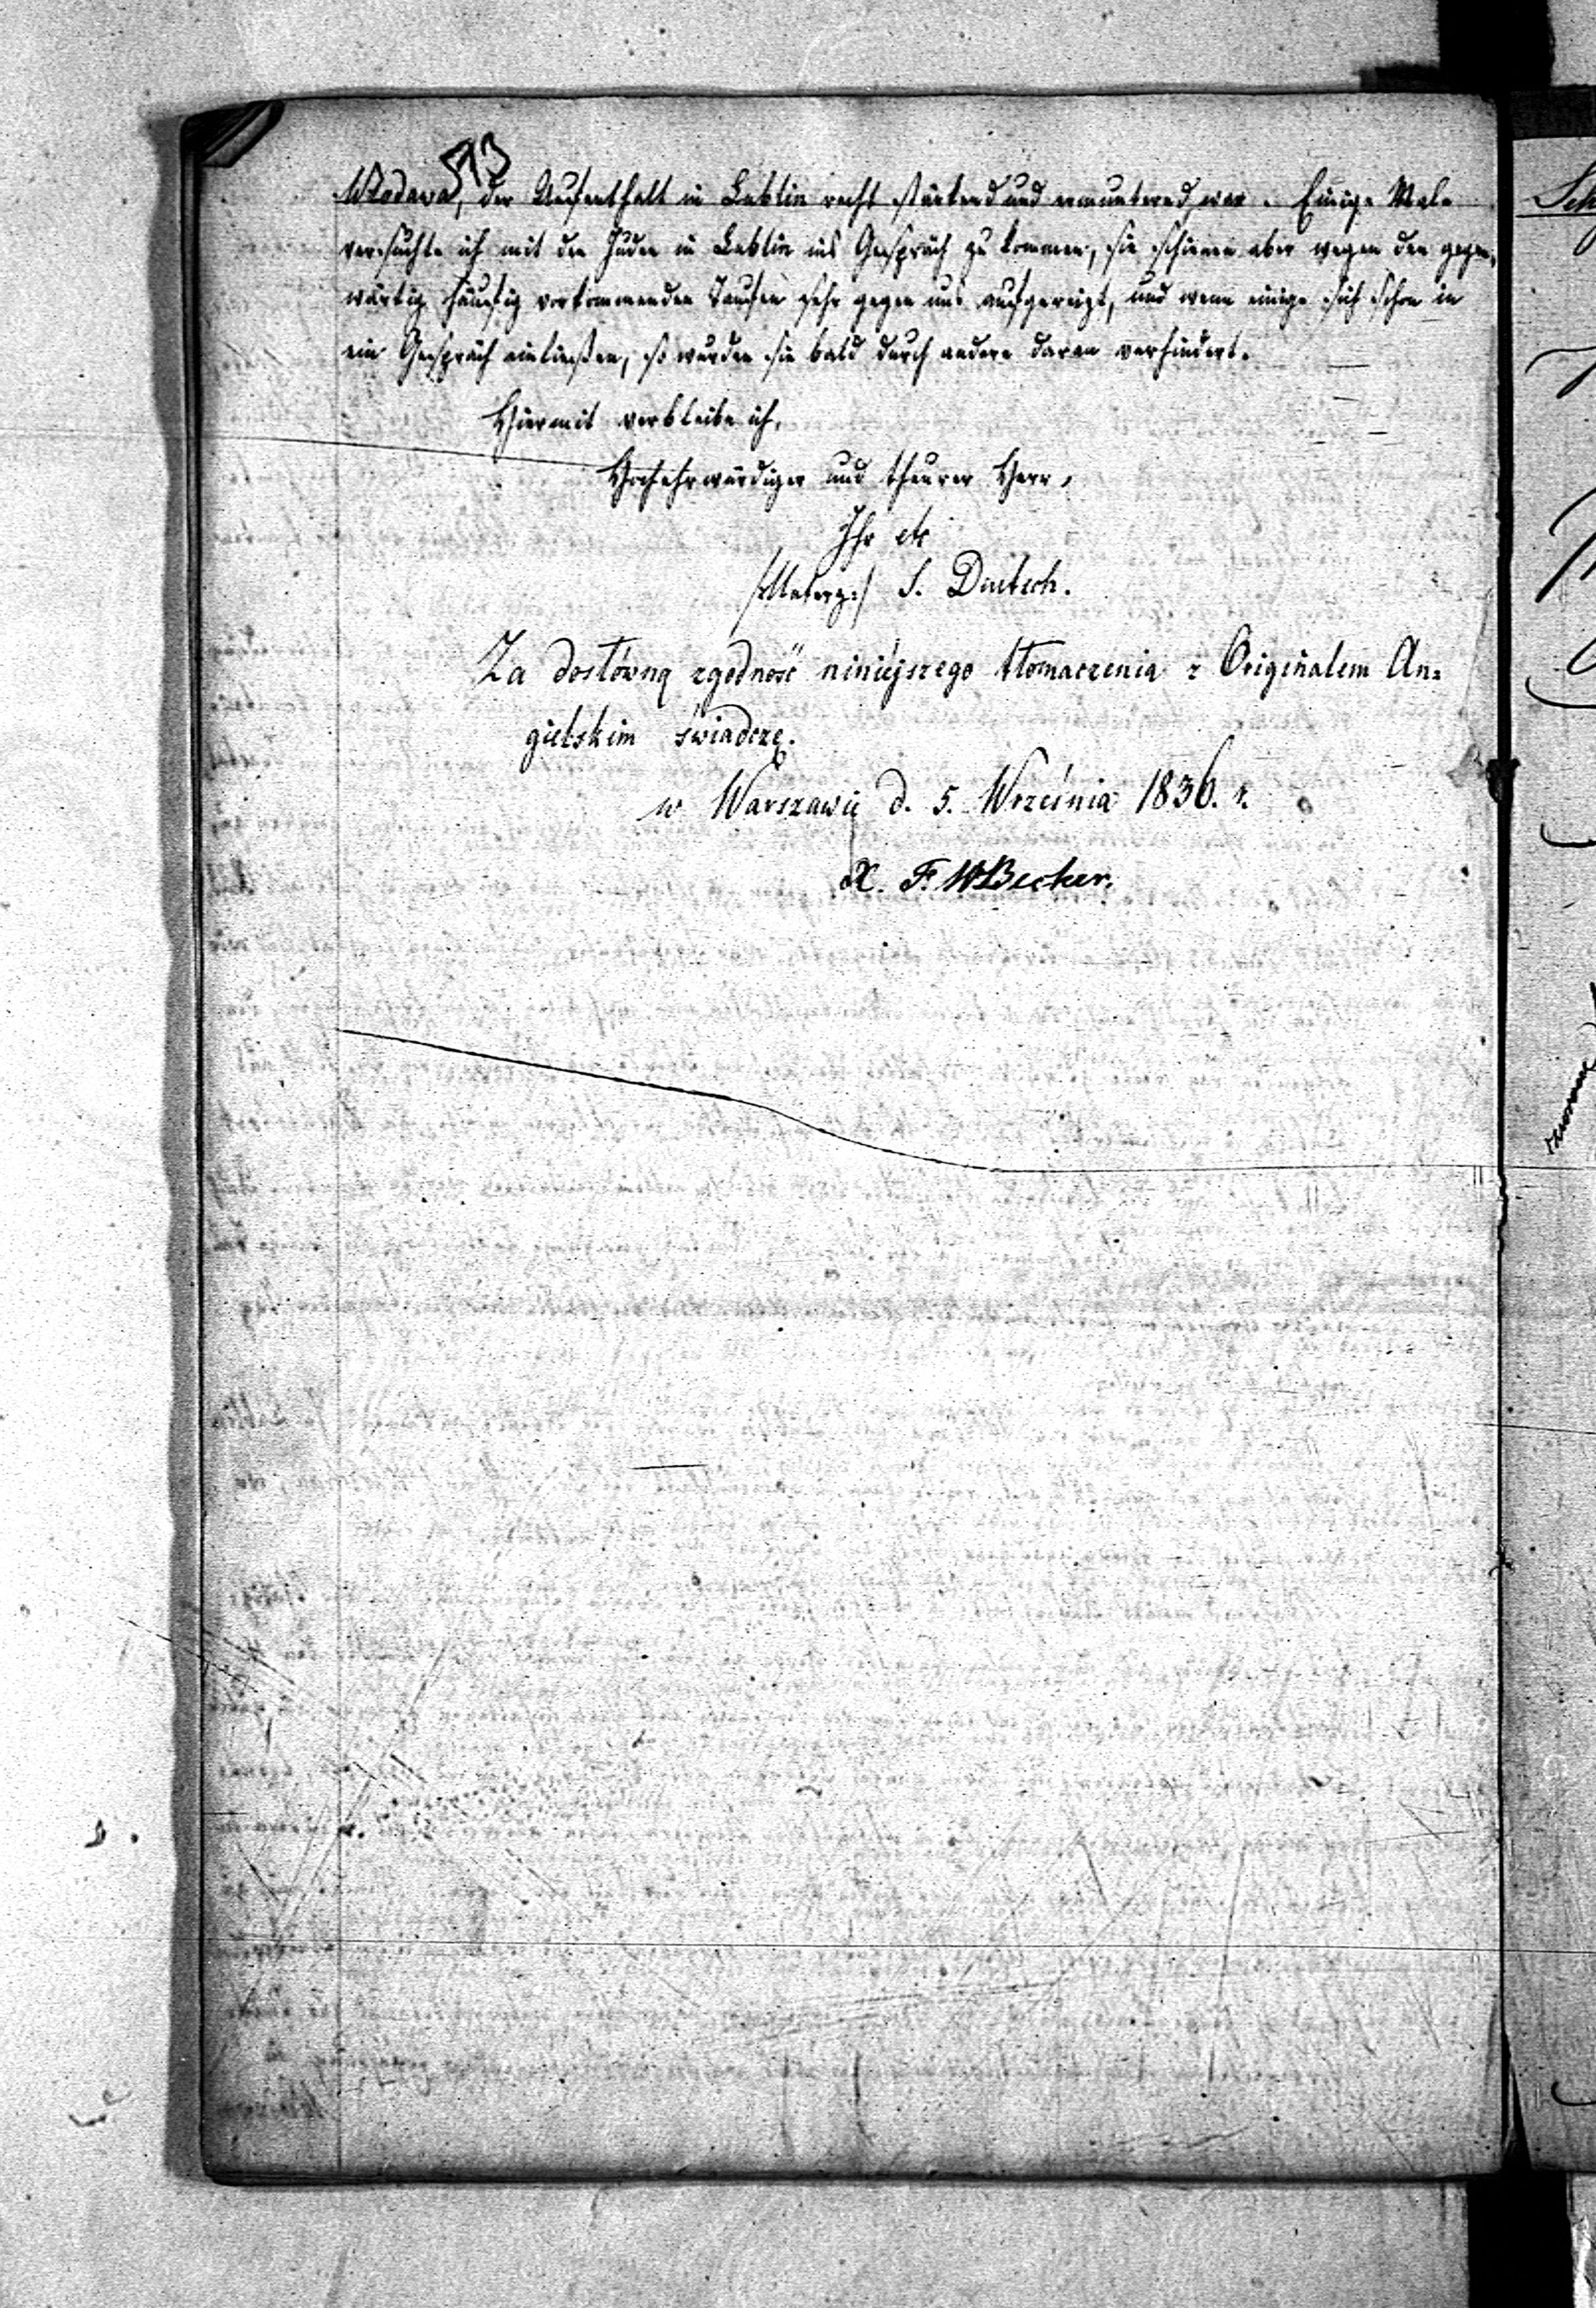 573
Włodawa, der Aufenthalt in Lublin recht stärkend und ermunternd war. Einige Male
versuchte ich mit den Juden in Lublin ins Gespräch zu kommen, sie schienen aber wegen den gegen,
wärtig häufig vorkommenden Taufen sehr gegen uns aufgereizt, und wenn einige sich schon in
ein Gespräch einließen, so wurden sie bald durch andere daran verhindert.
Hiermit verbleibe ich,
Hochehrwürdiger und theurer Herr,
Ihr etc
/:Unterz:/ S. Deutsch.
Za dosłówną zgodność niniéjszego tłomaczenia z Originałem An=
gielskim świadczę.
w Warszawie d. 5. Września 1836. r.
X. F. W Becker.